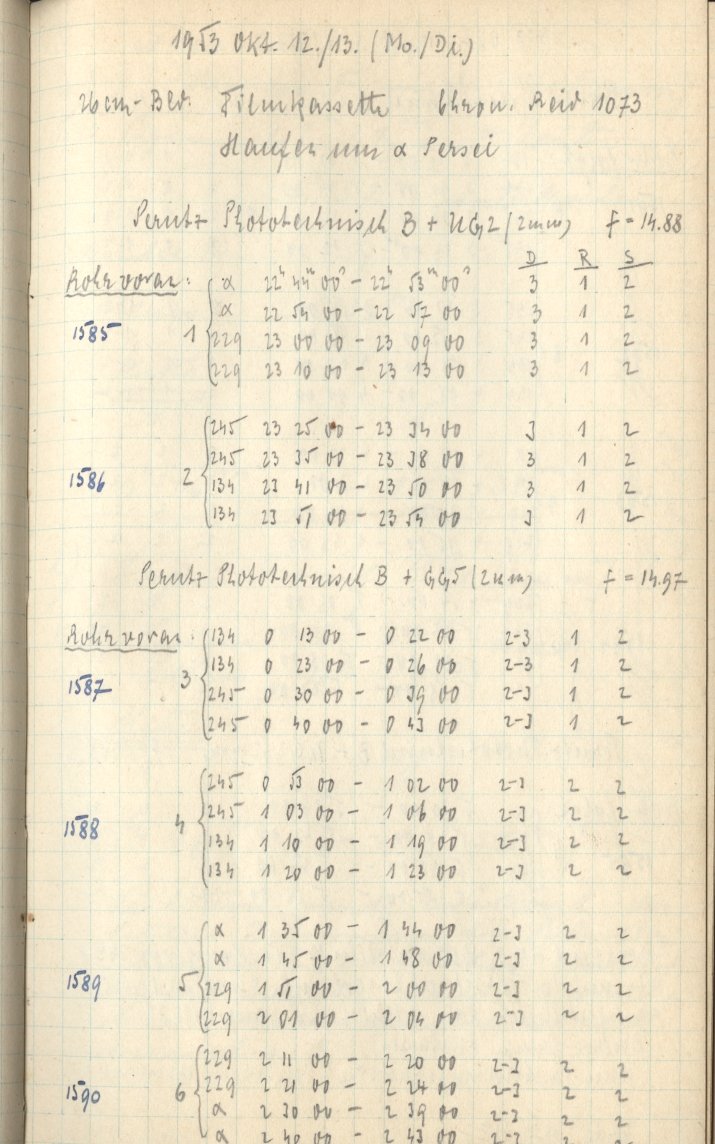 1953 Okt. 12./13. (Mo./Di.)
26cm-Bld. Filmkassette Chron. Reid 1073
Haufen um α Persei
Perutz Phototechnisch B + UG2 (2mm) f = 14.88
D R S
Rohr voran: α 22h 44m 00s - 22h 53m 00s 3 1 2
α 22 54 00 - 22 57 00 3 1 2
1585 1 229 23 00 00 - 23 09 00 3 1 2
229 23 10 00 - 23 13 00 3 1 2
245 23 25 00 - 23 34 00 3 1 2
245 23 35 00 - 23 38 00 3 1 2
1586 2 134 23 41 00 - 23 50 00 3 1 2
134 23 51 00 - 23 54 00 3 1 2
Perutz Phototechnisch B + GG5 (2mm) f = 14.97
Rohr voran: 134 0 13 00 - 0 22 00 2-3 1 2
134 0 23 00 - 0 26 00 2-3 1 2
1587 3 245 0 30 00 - 0 39 00 2-3 1 2
245 0 40 00 - 0 43 00 2-3 1 2
245 0 53 00 - 1 02 00 2-3 2 2
245 1 03 00 - 1 06 00 2-3 2 2
1588 4 134 1 10 00 - 1 19 00 2-3 2 2
134 1 20 00 - 1 23 00 2-3 2 2
α 1 35 00 - 1 44 00 2-3 2 2
α 1 45 00 - 1 48 00 2-3 2 2
1589 5 229 1 51 00 - 2 00 00 2-3 2 2
229 2 01 00 - 2 04 00 2-3 2 2
229 2 11 00 - 2 20 00 2-3 2 2
229 2 21 00 - 2 24 00 2-3 2 2
1590 6 α 2 30 00 - 2 39 00 2-3 2 2
α 2 40 00 - 2 43 00 2-3 2 2